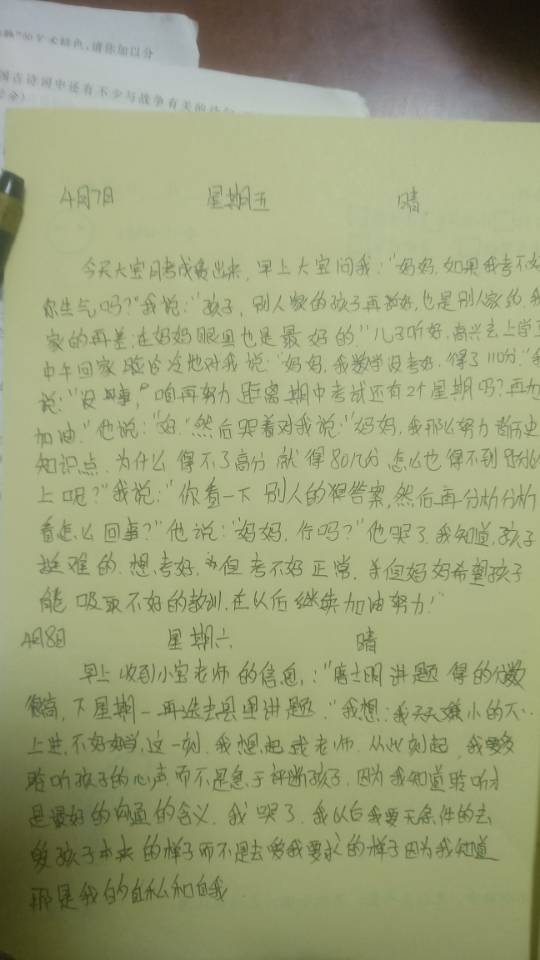 的艺术特色,请你加以分
国古诗词中还有不少与战争有关的诗句
4月7日 星期五 晴
今天大宝月考成绩出来,早上大宝问我:"妈妈,如果我考不好
你生气吗?"我说:"孩子,别人家的孩子再好,也是别人家的,我
家的再差,在妈妈眼里也是最好的"儿子听好,高兴去上学了
中午回家 对我说:"妈妈,我数学没考好,得了110分."我
说:"没事,咱再努力 距离期中考试还有2个星期吗?再加
加油."他说:"好."然后哭着对我说:"妈妈,我那么努力背历史
知识点,为什么得不了高分 就得80几分 怎么也得不到
上呢?"我说:"你看一下别人的答案,然后再分析分析
看怎么回事?"他说:"妈妈,行吗?"他哭了,我知道,孩子
挺难的,想考好,但考不好正常,但妈妈希望孩子
能吸取不好的教训,在以后继续加油努力!"
4月8日 星期六 晴
早上收到小宝老师的信息,:" 讲题 得的分数
很高,下星期一再选去县里讲题."我想:我天天嫌小的不
上进,不好好学,这一刻,我想起 老师,从此刻起,我要多
聆听孩子的心声而不是急于评断孩子,因为我知道聆听才
是最好的沟通的含义,我哭了,我以后我要无条件的去
爱孩子本来的样子而不是去爱我要求的样子因为我知道
那是我的自私和自我.